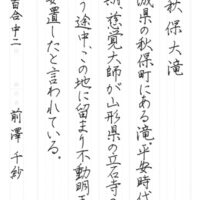 秋保大滝
城県の秋保町にある滝。平安時代
期、慈覚大師が山形県の立石寺
う途中、この地に留まり不動明王
安置したと言われている。
百合中二
前澤千紗